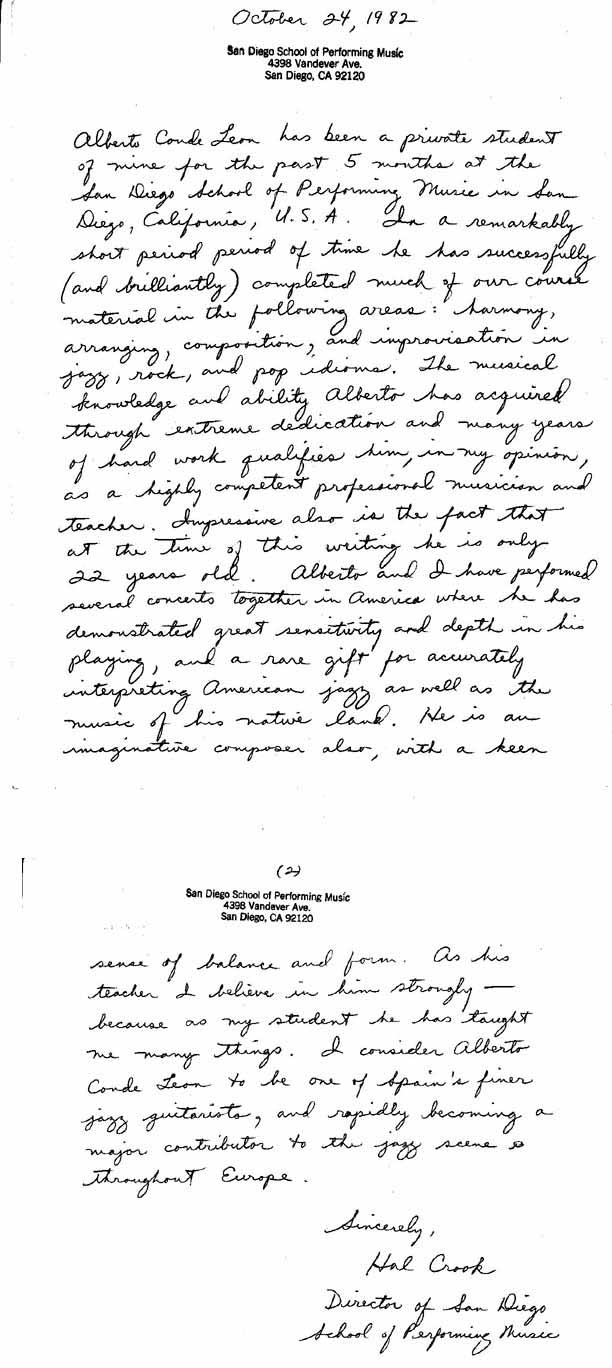 October 24, 1982
San Diego School of Performing Music
4398 Vandever Ave.
San Diego, CA 92120
Alberto Conde Leon has been a private student
of mine for the past 5 months at the
San Diego School of Performing Music in San
Diego, California, U.S.A. In a remarkably
short period period of time he has successfully
(and brilliantly) completed much of our course
material in the following areas: harmony,
arranging, composition, and improvisation in
jazz, rock, and pop idioms. The musical
knowledge and ability Alberto has acquired
through extreme dedication and many years
of hard work qualifies him, in my opinion,
as a highly competent professional musician and
teacher. Impressive also is the fact that
at the time of this writing he is only
22 years old. Alberto and I have performed
several concerts together in America where he has
demonstrated great sensitivity and depth in his
playing, and a rare gift for accurately
interpreting American jazz as well as the
music of his native land. He is an
imaginative composer also, with a keen
(2)
San Diego School of Performing Music
4398 Vandever Ave.
San Diego, CA 92120
sense of balance and form. As his
teacher I believe in him strongly —
because as my student he has taught
me many things. I consider Alberto
Conde Leon to be one of Spain's finer
jazz guitarists, and rapidly becoming a
major contributor to the jazz scene
throughout Europe.
Sincerely,
Hal Crook
Director of San Diego
School of Performing Music